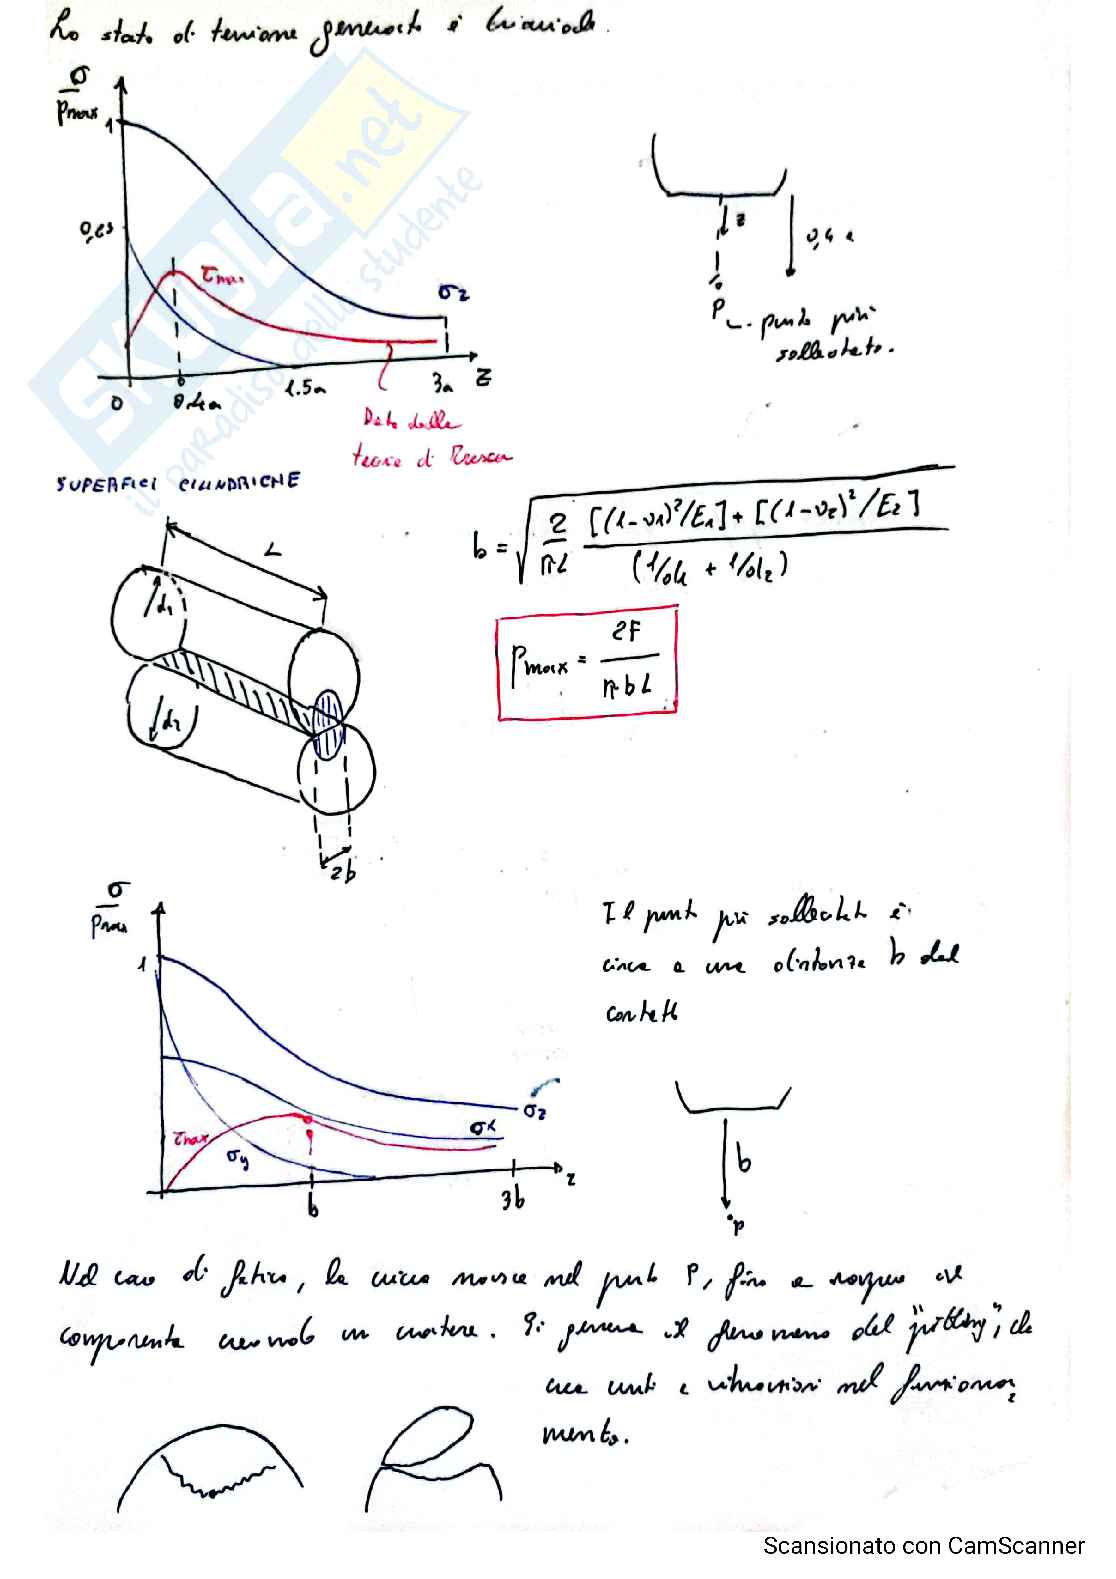 Lo stato di tensione generato è triassiale.
σ
Pmax
1
0,63
τmax
σz
0
0.4a
1.5a
3a
z
Dato dalla
teoria di Tresca
z
0,4 a
P
punto più
sollecitato.
SKUOLA.net
il paradiso dello studente
SUPERFICI CILINDRICHE
L
d1
d2
2b
b = √ 2/πL [(1-ν1)²/E1] + [(1-ν2)²/E2] / (1/d1 + 1/d2)
Pmax = 2F / πbL
σ
Pmax
1
τmax
σy
σx
σz
b
3b
z
Il punto più sollecitato è
circa a una distanza b dal
contatto
b
P
Nel caso di fatica, la cricca nasce nel punto P, fino a
componente creando un cratere. Si genera il fenomeno del "pitting", che
crea urti e vibrazioni nel funziona
mento.
Scansionato con CamScanner